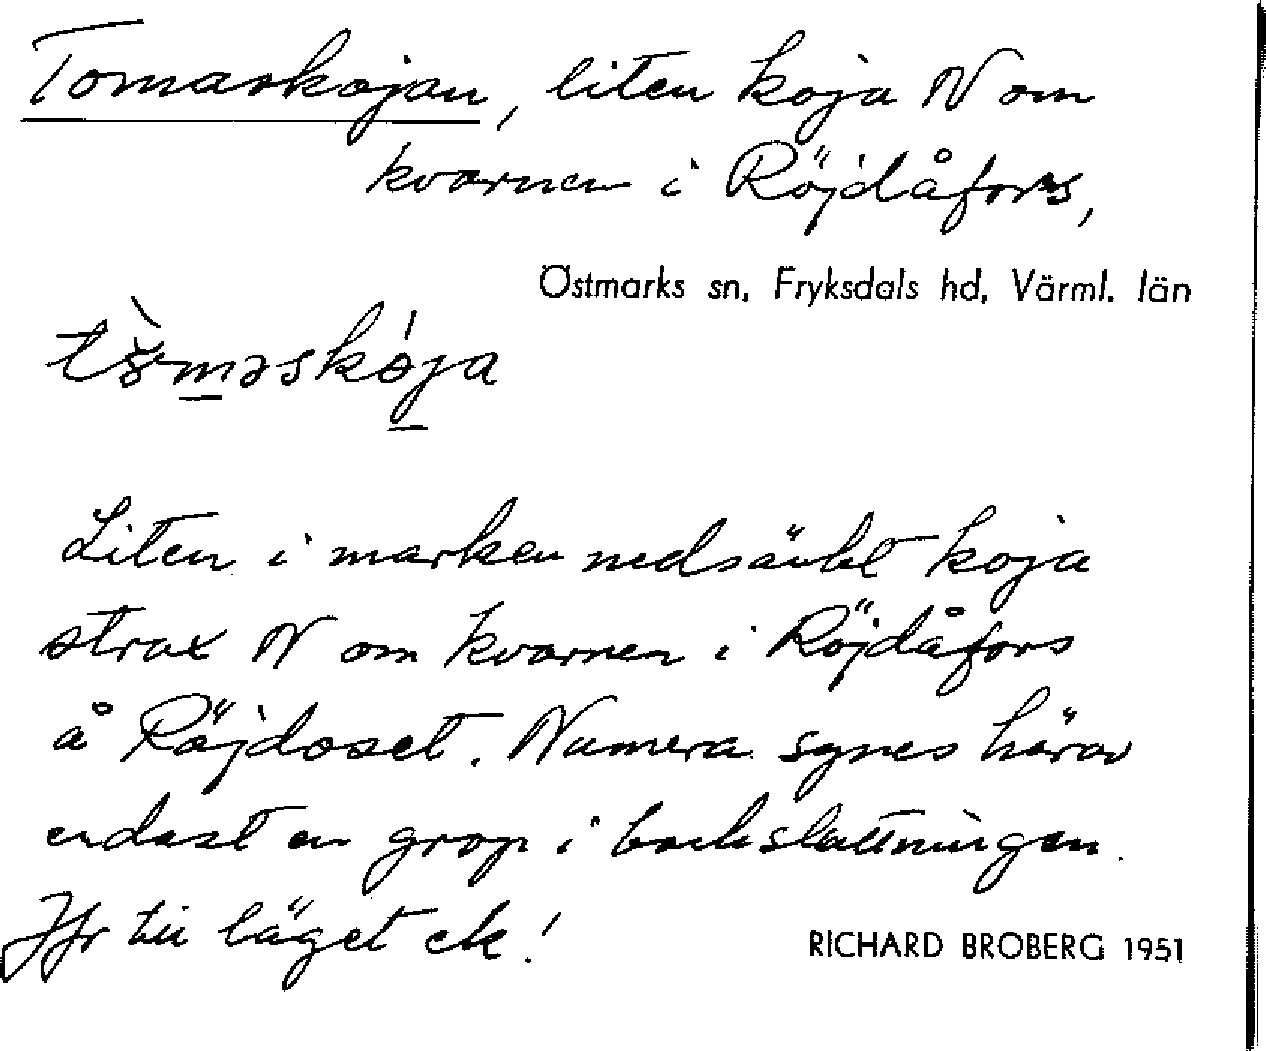 Tomaskojan, liten koja N om
kvarnen i Röjdåfors,
Östmarks sn, Fryksdals hd, Värml. län
Liten i marken nedsänkt koja
strax N om kvarnen i Röjdåfors
å Röjdoset. Numera synes härav
endast en grop i backslattningen.
Jfr till läget ek!
RICHARD BROBERG 1951